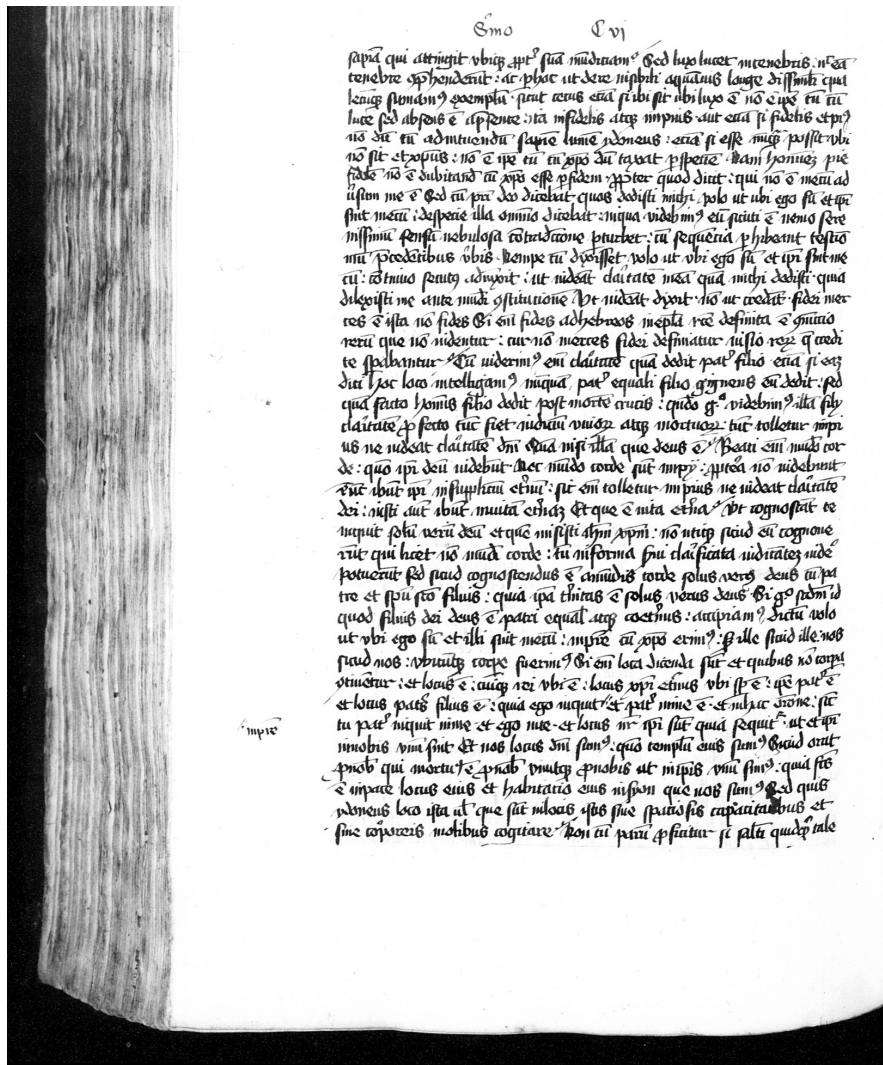 Sˀmo Cvj
sapīa qui attingit vbiqꝫ ꝓptˀ suā mūdiciamˀ Sed lux lucet intenebris · ⁊ eā
tenebre ꝯp̄henderūt : ac ꝑhoc ut dere uisibili aquāuis longe dissimili qua
lēcūqꝫ sumamꝰ exemplū · sicut cecus etiā si ibi sit ubi lux ē nō ē ip̄e tn̄ cū
luce sed absens ē ap̄sente : ita infidelis atqꝫ impius · aut etiā si fidelis et piꝰ
nō dū tn̄ adintuendū sapīe lumē ydoneus : etiā si esse nūqꝫ possit vbi
nō sit et xp̄us : nō ē ip̄e tn̄ cū xp̄o dū taxat ꝑ sp̄eciē Nam hominēz pie
fidelē nō ē dubitandū cū xp̄o esse ꝑ fidem ꝓpter quod dicit : qui nō ē mecū ad
ūsum me ē Sed cū pr̄i deo dicebat quos dedisti michi · volo ut ubi ego sū et ip̄i
sint mecū : despecie illa om̄ino dicebat : inqua videbimꝰ eū sicuti ē nemo sere
nissimū sensū nebulosa cōtradictione ꝑturbet : cū sequēcia ꝑhibeant testio
niū p̄cedētibus ūbis Nempe cū dixisset volo ut vbi ego sū et ip̄i sint me
cū : cōtinuo secutꝰ adiūxit : ut uideāt claˀitatē meā quā michi dedisti · quia
dilexisti me ante mūdi ꝯstitucionē Vt uideāt dixit · nō ut credāt · fidei mer
ces ē ista nō fides Si em̄ fides adhebreos inepl̄a rc̄e definita ē ꝯuictio
rerū que nō uidentur : cur nō merces fidei definiatur uisio reꝝ q̄ credi
te sꝑabantur Cū viderimꝰ em̄ claˀitatē quā dedit patˀ filio · etiā si eaꝫ
dici hoc loco intelligamꝰ nūquā patˀ equali filio gignens eū dedit : sed
quā facto hom̄is filio dedit post mortē crucis : quādo gͦ videbimꝰ illā filij
claˀitatē ꝓfecto tūc fiet iudiciū viuoꝝ atqꝫ mortuoꝝ : tūc tolletur impi
us ne uideat claˀitatē dn̄i Quā nisi illā que deus ē Beati em̄ mūdo cor
de : quō ip̄i deū uidebūt Nec mūdo corde sūt impij : ꝓpterea nō uidebunt
tūc ibūt ip̄i insuppliciū etˀnū : sic em̄ tolletur impius ne uideat claˀitatē
dei : iusti aūt ibūt inuitā etˀnaꝫ Et que ē uita etˀna Vt cognoscāt te
inquit solū verū deū et quē misisti ihm̄ xp̄m : nō utiqꝫ sicud eū cognoue
rūt qui licet nō mūdi corde : tn̄ informa sˀui claˀificata uidˀe
potuerūt sed sicud cognoscendus ē amūdis corde solus verꝰ deus cū pa
tre et spū sc̄o filius : quia ip̄a tˀnitas ē solus verus deus Si gͦ scd̄m id
quod filius dei deus ē patri equal̄ atqꝫ coetˀnus : accipiamꝰ dictū volo
ut vbi ego sū et illi sint mecū : inpr̄e cū xp̄o erimꝰ : Sꝫ ille sicud ille : nos
sicud nos : vbicūqꝫ corꝑe fuerimꝰ Si em̄ loca dicenda sūt et quibus nō corꝑa
ꝯtinētur : et locus ē : cuiqꝫ rei vbi ē : locus xp̄i etˀnus vbi sp̄ ē : ip̄e patˀ ē
et locus patˀs filius ē : quia ego inquit et patˀ in me ē · et inhac or̄one : sic
tu patˀ inquit in me · et ego in te · et locus nr̄ ip̄i sūt quia sequitˀ · ut et ip̄i
innobis vnū sint Et nos locus dn̄i sumꝰ : quō templū eius sumꝰ Sicud orat
ꝓnobˀ qui mortuꝰ ē ꝓnobˀ viuitqꝫ ꝓnobis ut inip̄is vnū simꝰ : quia fc̄s
ē inpace locus eius et habitacio eius insyon que nos sumꝰ Sed quis
ydoneus loco ista uˀl que sūt inlocis istis sine spaciosis capacitatibus et
sine corꝑoreis molibus cogitare Non tn̄ parū ꝓficitur si saltī quidqꝫ tale
inpr̄e